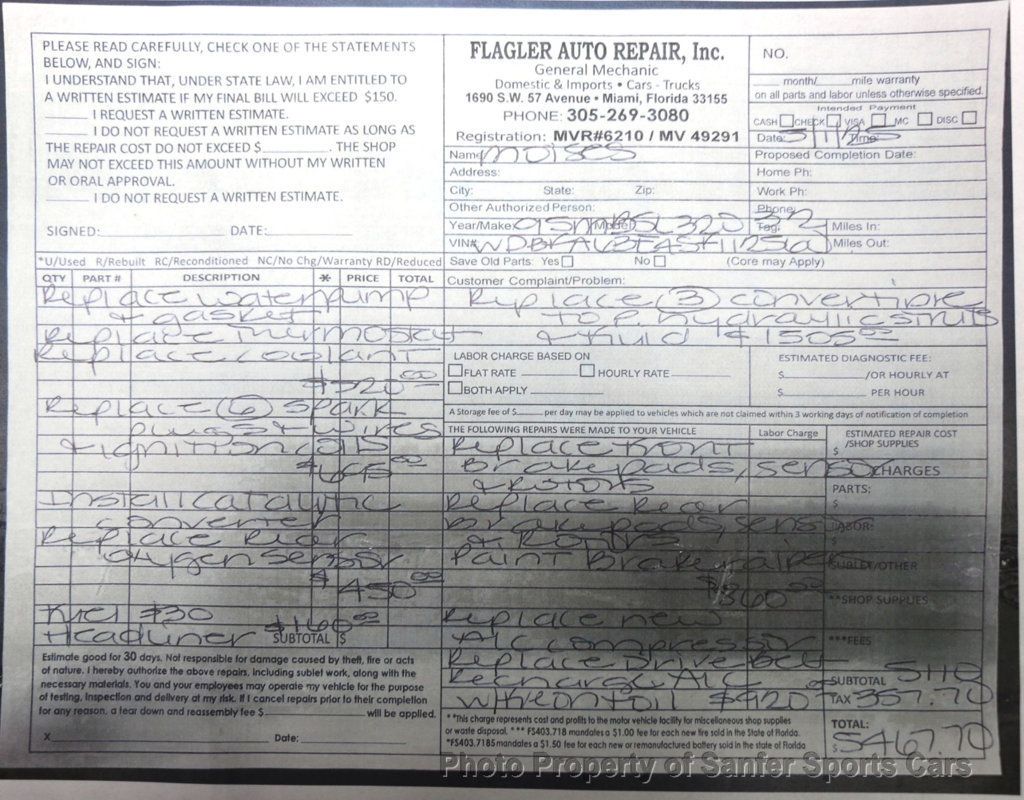 PLEASE READ CAREFULLY, CHECK ONE OF THE STATEMENTS
BELOW, AND SIGN:
I UNDERSTAND THAT, UNDER STATE LAW, I AM ENTITLED TO
A WRITTEN ESTIMATE IF MY FINAL BILL WILL EXCEED $150.
I REQUEST A WRITTEN ESTIMATE.
I DO NOT REQUEST A WRITTEN ESTIMATE AS LONG AS
THE REPAIR COST DO NOT EXCEED $ . THE SHOP
MAY NOT EXCEED THIS AMOUNT WITHOUT MY WRITTEN
OR ORAL APPROVAL.
I DO NOT REQUEST A WRITTEN ESTIMATE.
SIGNED: DATE:
FLAGLER AUTO REPAIR, Inc.
General Mechanic
Domestic & Imports • Cars - Trucks
1690 S.W. 57 Avenue • Miami, Florida 33155
PHONE: 305-269-3080
Registration: MVR#6210 / MV 49291
NO.
month/ mile warranty
on all parts and labor unless otherwise specified.
Intended Payment
CASH CHECK VISA MC DISC
Date: Time:
Name Moises
Proposed Completion Date:
Address:
Home Ph:
City: State: Zip:
Work Ph:
Other Authorized Person:
Phone:
Year/Make: 95 MB Model SL320
Tag:
Miles In:
VIN#
Miles Out:
*U/Used R/Rebuilt RC/Reconditioned NC/No Chg/Warranty RD/Reduced
Save Old Parts: Yes No (Core may Apply)
QTY PART # DESCRIPTION * PRICE TOTAL
Replace water pump
& gasket
Replace Thermostat
Replace coolant
Replace (6) Spark
plugs & wires
& ignition coils
Install catalytic
converter
Replace Rear
oxygen sensor
$450.00
Fuel $30
Headliner $160.00
SUBTOTAL $
Customer Complaint/Problem:
Replace (3) convertible
top hydraulic struts
& fluid $1505.00
LABOR CHARGE BASED ON
FLAT RATE HOURLY RATE
BOTH APPLY
ESTIMATED DIAGNOSTIC FEE:
$ /OR HOURLY AT
$ PER HOUR
A Storage fee of $ per day may be applied to vehicles which are not claimed within 3 working days of notification of completion
THE FOLLOWING REPAIRS WERE MADE TO YOUR VEHICLE
Labor Charge
ESTIMATED REPAIR COST
/SHOP SUPPLIES
$
Replace Front
Brake pads, sensor
& Rotors
Replace Rear
Brake pads, sens
& Rotors
Paint Brake calipers
$860.00
Replace new
A/C compressor
Replace Drive Belt
Recharge A/C
w/ freon + oil $920
CHARGES
PARTS:
$
LABOR:
$
SUBLET/OTHER
**SHOP SUPPLIES
***FEES
SUBTOTAL 5110
TAX 357.70
TOTAL:
$5467.70
Estimate good for 30 days. Not responsible for damage caused by theft, fire or acts
of nature. I hereby authorize the above repairs, including sublet work, along with the
necessary materials. You and your employees may operate my vehicle for the purpose
of testing, inspection and delivery at my risk. If I cancel repairs prior to their completion
for any reason, a tear down and reassembly fee $ will be applied.
X Date:
**This charge represents cost and profits to the motor vehicle facility for miscellaneous shop supplies
or waste disposal. *** FS403.718 mandates a $1.00 fee for each new tire sold in the State of Florida.
*FS403.7185 mandates a $1.50 fee for each new or remanufactured battery sold in the state of Florida
Photo Property of Sanfer Sports Cars